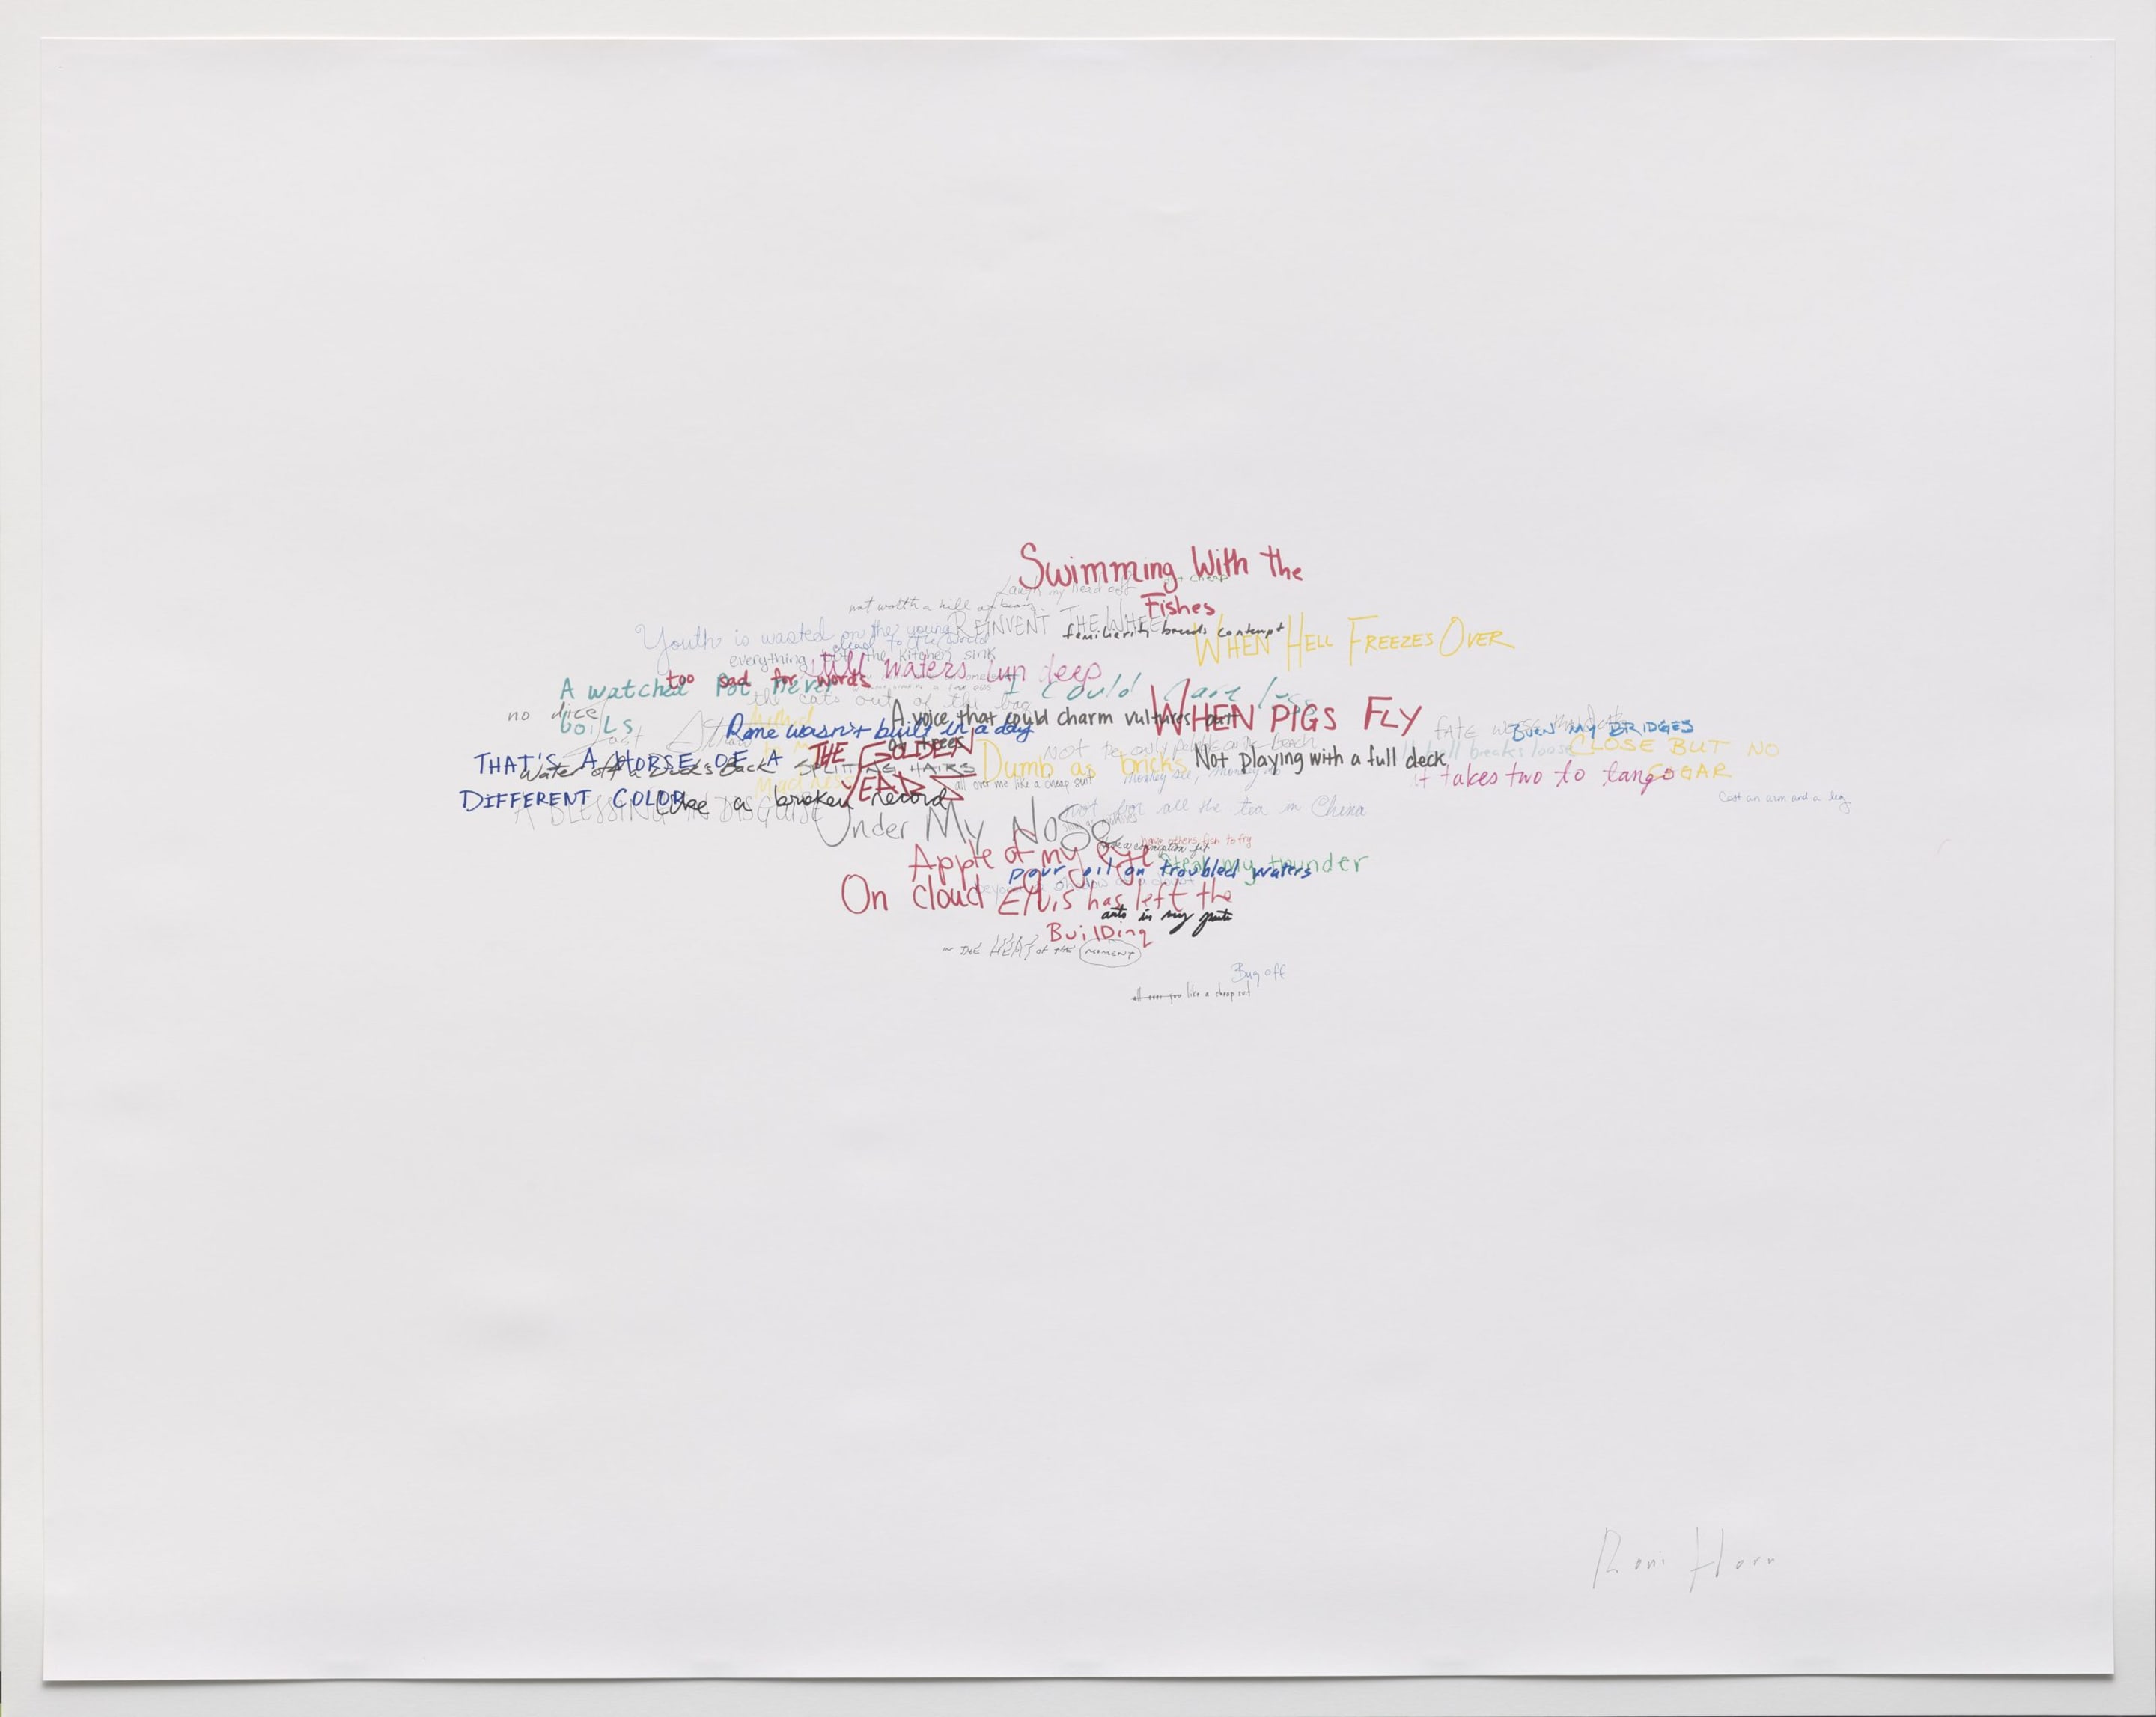 Swimming With the
Fishes
Laugh my head off
cheap
not worth a hill of beans
REINVENT THE WHEEL
Youth is wasted on the young
familiarity breeds contempt
WHEN HELL FREEZES OVER
dead to the world
everything but the kitchen sink
still waters run deep
too sad for words
A watched pot never
boiLs
I could care less
the cats out of the bag
no dice
A voice that could charm vultures out
of trees
WHEN PIGS FLY
Rome wasn't built in a day
FATE WORSE than death
BURN MY BRIDGES
THE GOLDEN
YEARS
not the only pebble on the beach
all hell breaks loose
CLOSE BUT NO
CIGAR
THAT'S A HORSE OF A
DIFFERENT COLOR
Water off a Ducks Back
SPLITTING HAIRS
Dumb as bricks
Not playing with a full deck
it takes two to tango
all over me like a cheap suit
monkey see, monkey do
Cost an arm and a leg
Like a broken record
A BLESSING IN DISGUISE
not for all the tea in China
Under My NoSe
have others fish to fry
Apple of my eye
Steal my thunder
pour oil on troubled waters
beyond a shadow of a doubt
On cloud
Elvis has left the
BuilDing
ants in my pants
in THE HEAT of the MOMENT
Bug off
all over you like a cheap suit
Roni Horn